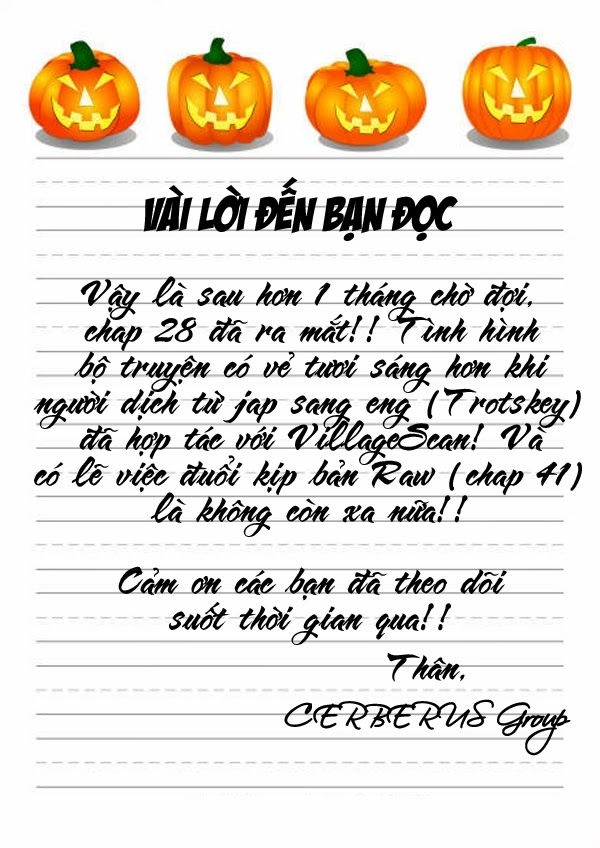 VÀI LỜI ĐẾN BẠN ĐỌC
Vậy là sau hơn 1 tháng chờ đợi,
chap 28 đã ra mắt!! Tình hình
bộ truyện có vẻ tươi sáng hơn khi
người dịch từ jap sang eng (Trotskey)
đã hợp tác với VillageScan! Và
có lẽ việc đuổi kịp bản Raw (chap 41)
là không còn xa nữa!!
Cảm ơn các bạn đã theo dõi
suốt thời gian qua!!
Thân,
CERBERUS Group